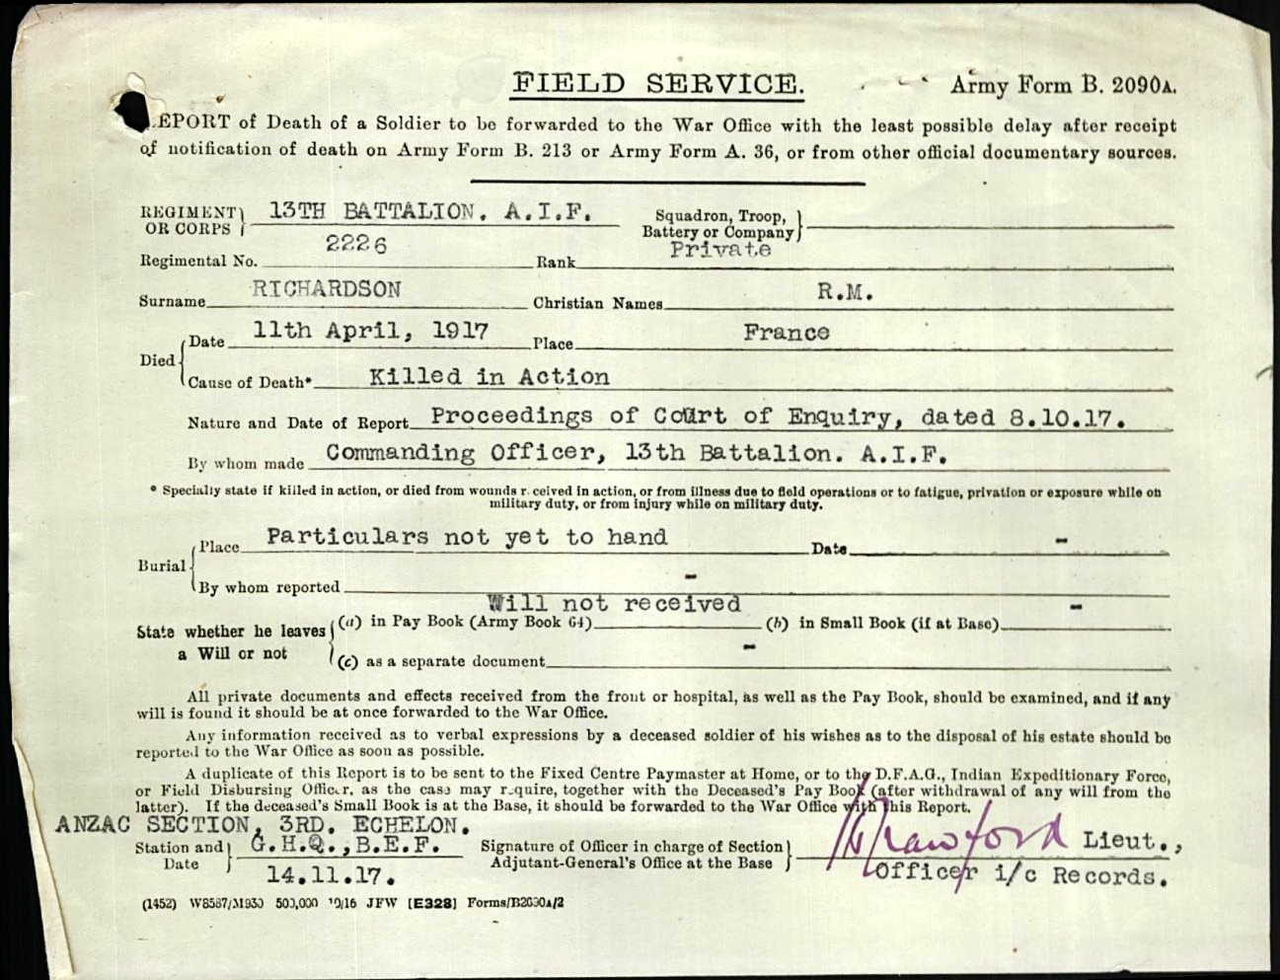 FIELD SERVICE. Army Form B. 2090A.
REPORT of Death of a Soldier to be forwarded to the War Office with the least possible delay after receipt
of notification of death on Army Form B. 213 or Army Form A. 36, or from other official documentary sources.
REGIMENT OR CORPS 13TH BATTALION. A.I.F. Squadron, Troop, Battery or Company
Regimental No. 2226 Rank Private
Surname RICHARDSON Christian Names R.M.
Died Date 11th April, 1917 Place France
Cause of Death* Killed in Action
Nature and Date of Report Proceedings of Court of Enquiry, dated 8.10.17.
By whom made Commanding Officer, 13th Battalion. A.I.F.
* Specially state if killed in action, or died from wounds received in action, or from illness due to field operations or to fatigue, privation or exposure while on
military duty, or from injury while on military duty.
Burial Place Particulars not yet to hand Date -
By whom reported -
Will not received
State whether he leaves a Will or not (a) in Pay Book (Army Book 64) (b) in Small Book (if at Base) -
(c) as a separate document -
All private documents and effects received from the front or hospital, as well as the Pay Book, should be examined, and if any
will is found it should be at once forwarded to the War Office.
Any information received as to verbal expressions by a deceased soldier of his wishes as to the disposal of his estate should be
reported to the War Office as soon as possible.
A duplicate of this Report is to be sent to the Fixed Centre Paymaster at Home, or to the D.F.A.G., Indian Expeditionary Force,
or Field Disbursing Officer, as the case may require, together with the Deceased's Pay Book (after withdrawal of any will from the
latter). If the deceased's Small Book is at the Base, it should be forwarded to the War Office with this Report.
ANZAC SECTION, 3RD. ECHELON.
Station and Date G.H.Q., B.E.F. Signature of Officer in charge of Section Adjutant-General's Office at the Base Crawford Lieut.,
14.11.17. Officer i/c Records.
(1452) W8587/M1930 500,000 10/16 JFW [E328] Forms/B2090A/2